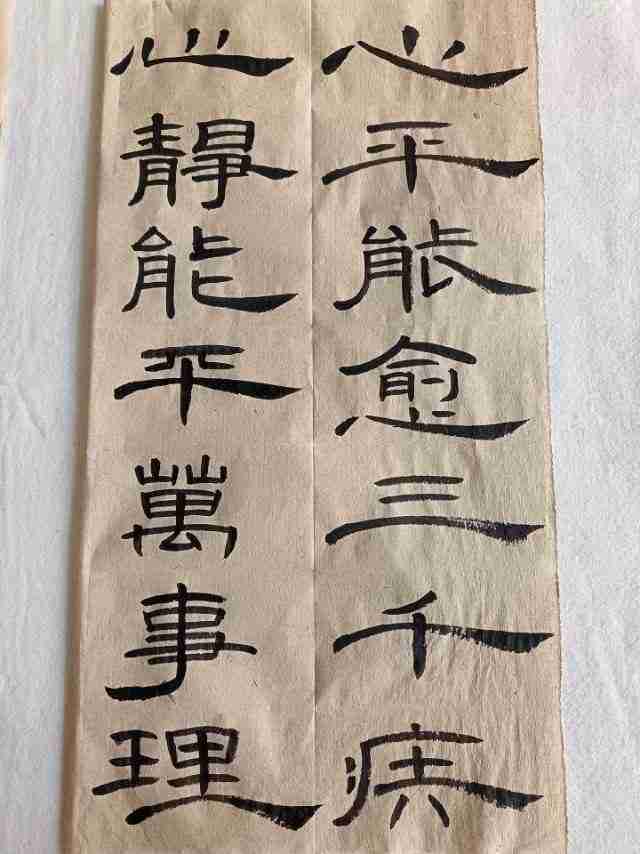 心平能愈三千疾
心靜能平萬事理